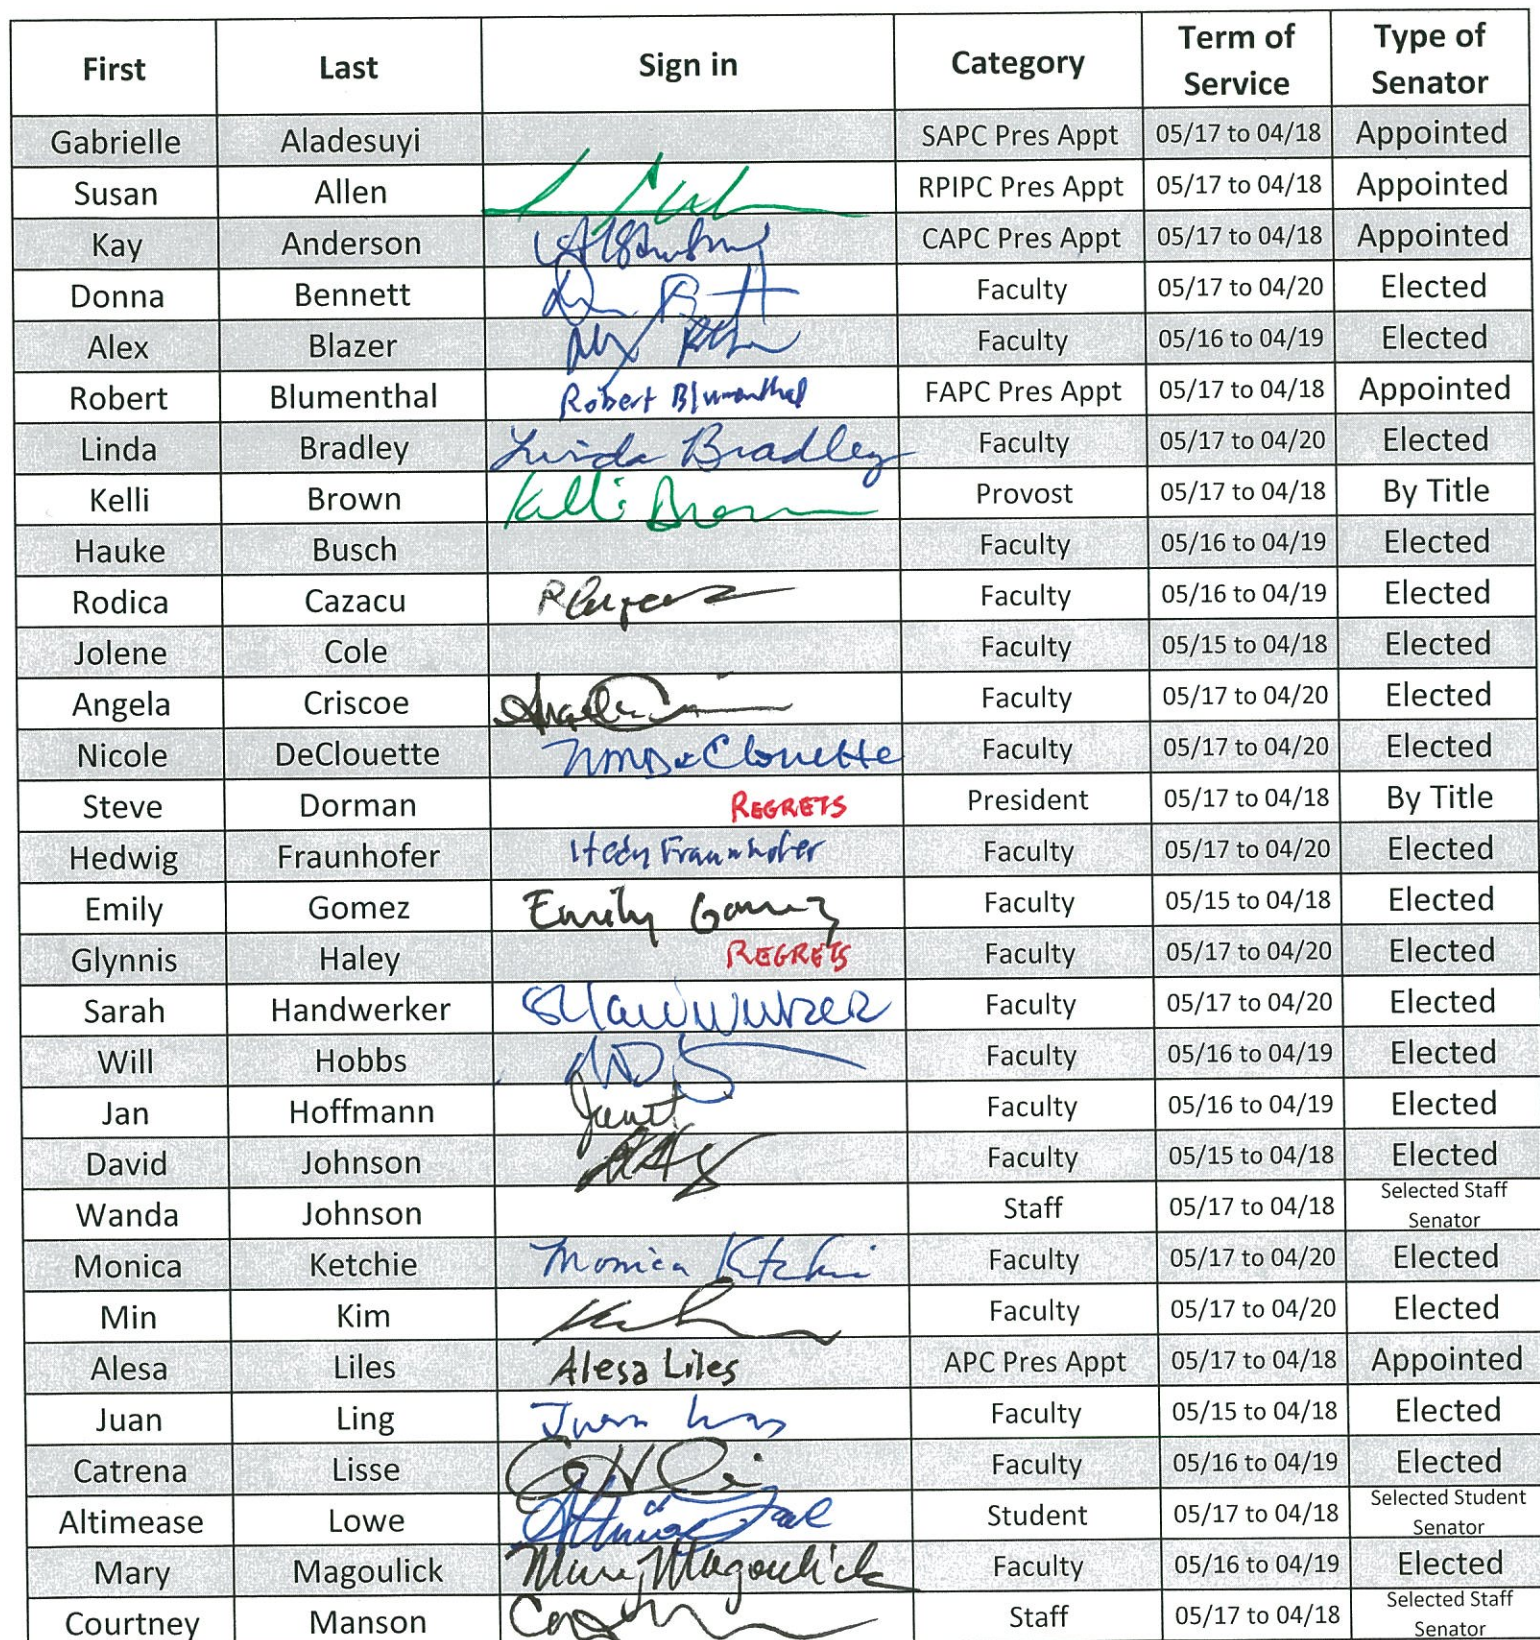 First Last Sign in Category Term of Service Type of Senator
Gabrielle Aladesuyi SAPC Pres Appt 05/17 to 04/18 Appointed
Susan Allen RPIPC Pres Appt 05/17 to 04/18 Appointed
Kay Anderson CAPC Pres Appt 05/17 to 04/18 Appointed
Donna Bennett Faculty 05/17 to 04/20 Elected
Alex Blazer Faculty 05/16 to 04/19 Elected
Robert Blumenthal Robert Blumenthal FAPC Pres Appt 05/17 to 04/18 Appointed
Linda Bradley Linda Bradley Faculty 05/17 to 04/20 Elected
Kelli Brown Kelli Brown Provost 05/17 to 04/18 By Title
Hauke Busch Faculty 05/16 to 04/19 Elected
Rodica Cazacu Faculty 05/16 to 04/19 Elected
Jolene Cole Faculty 05/15 to 04/18 Elected
Angela Criscoe Faculty 05/17 to 04/20 Elected
Nicole DeClouette NMDeClouette Faculty 05/17 to 04/20 Elected
Steve Dorman REGRETS President 05/17 to 04/18 By Title
Hedwig Fraunhofer Hedy Fraunhofer Faculty 05/17 to 04/20 Elected
Emily Gomez Emily Gomez Faculty 05/15 to 04/18 Elected
Glynnis Haley REGRETS Faculty 05/17 to 04/20 Elected
Sarah Handwerker Faculty 05/17 to 04/20 Elected
Will Hobbs Faculty 05/16 to 04/19 Elected
Jan Hoffmann Faculty 05/16 to 04/19 Elected
David Johnson Faculty 05/15 to 04/18 Elected
Wanda Johnson Staff 05/17 to 04/18 Selected Staff Senator
Monica Ketchie Monica Ketchie Faculty 05/17 to 04/20 Elected
Min Kim Faculty 05/17 to 04/20 Elected
Alesa Liles Alesa Liles APC Pres Appt 05/17 to 04/18 Appointed
Juan Ling Juan Ling Faculty 05/15 to 04/18 Elected
Catrena Lisse Faculty 05/16 to 04/19 Elected
Altimease Lowe Student 05/17 to 04/18 Selected Student Senator
Mary Magoulick Mary Magoulick Faculty 05/16 to 04/19 Elected
Courtney Manson Staff 05/17 to 04/18 Selected Staff Senator